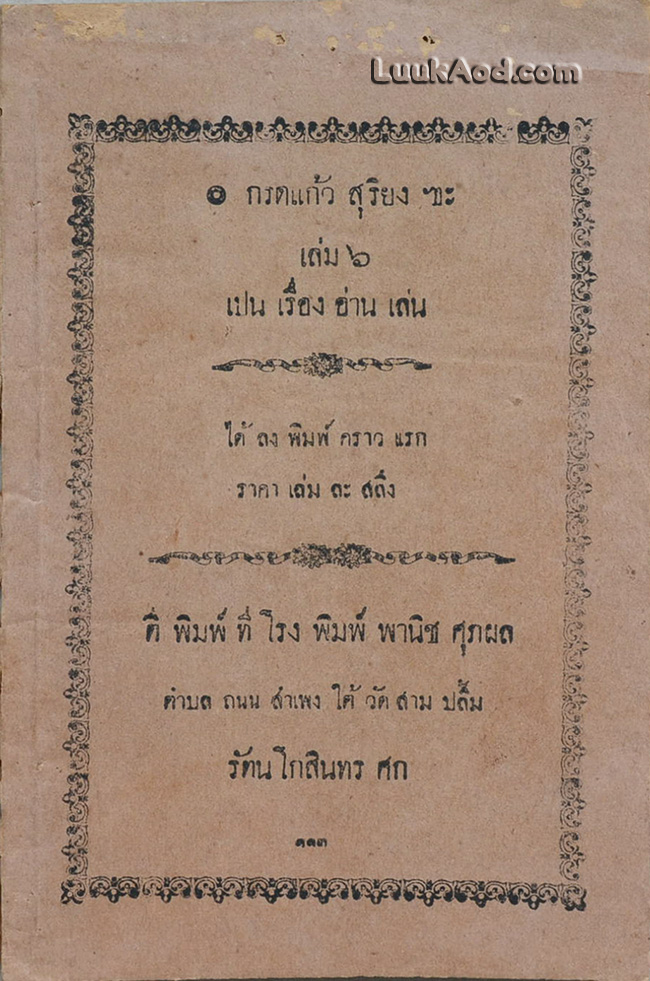 LuukAod.com
๏ กรดแก้ว สุริยง ฯะ
เล่ม ๖
เปน เรื่อง อ่าน เล่น
ได้ ลง พิมพ์ คราว แรก
ราคา เล่ม ละ สลึง
ตี พิมพ์ ที่ โรง พิมพ์ พานิช ศุภผล
ตำบล ถนน สำเพง ใต้ วัด สาม ปลื้ม
รัตน โกสินทร ศก
๑๑๓